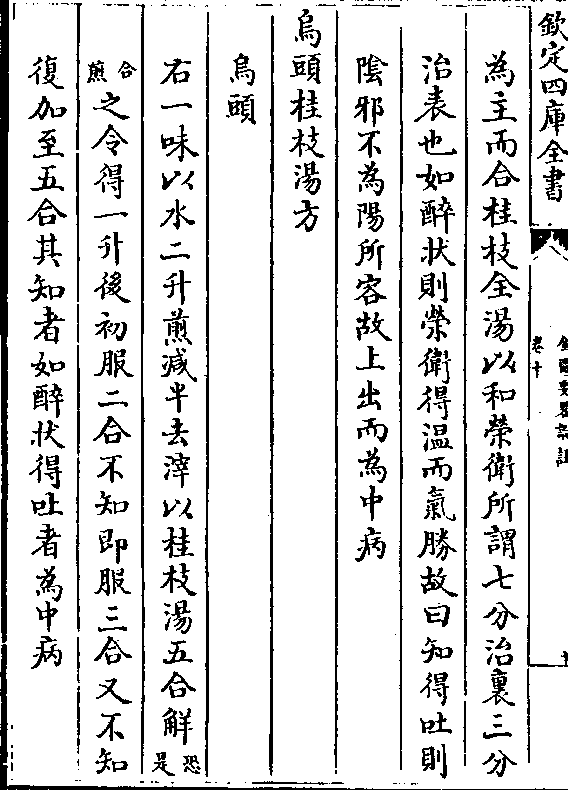 欽定四庫全書
金匱要畧論註
卷十
為主而合桂枝全湯以和榮衛所謂七分治裏三分
治表也如醉狀則榮衛得溫而氣勝故曰知得吐則
陰邪不為陽所容故上出而為中病
烏頭桂枝湯方
烏頭
右一味以水二升煎減半去滓以桂枝湯五合解恐是
合煎之令得一升後初服二合不知即服三合又不知
復加至五合其知者如醉狀得吐者為中病